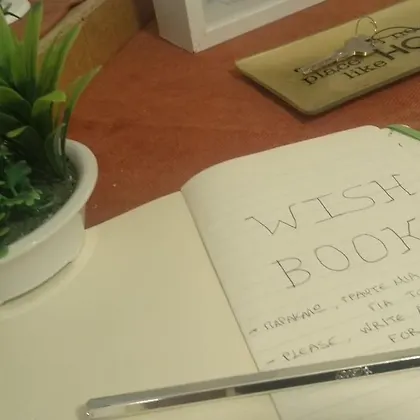 place
like HO
WISH
BOOK
- ΠΑΡΑΚΑΛΩ, ΓΡΑΨΤΕ ΜΙΑ
ΓΙΑ ΤΟ
- PLEASE, WRITE A
FOR